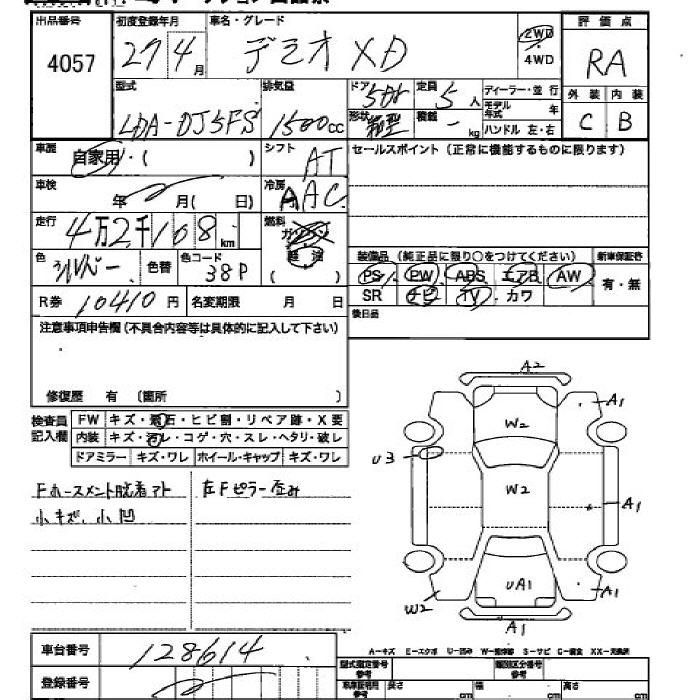 出品番号 初度登録年月 車名・グレード 評価点
4057 27 4月 デミオ XD 2WD 4WD RA
型式 排気量 ドア 定員 ディーラー・並行 外装 内装
LDA-DJ5FS 1500cc 5Dr 5人 モデル年式 年 C B
形状 箱型 積載 - kg ハンドル 左・右
車歴 自家用・( ) シフト AT セールスポイント(正常に機能するものに限ります)
車検 年 月( 日) 冷房 AAC
走行 4万2千108km 燃料 ガソリン
軽油
色 シルバー 色替 色コード 38P 装備品(純正品に限り○をつけてください) 新車保証書
PS PW ABS エアB AW 有・無
R券 10410円 名変期限 月 日 SR ナビ TV カワ
注意事項申告欄(不具合内容等は具体的に記入して下さい) 後日品
修復歴 有(箇所 )
検査員 FW キズ・飛石・ヒビ割・リペア跡・X要
記入欄 内装 キズ・汚レ・コゲ・穴・スレ・ヘタリ・破レ
ドアミラー キズ・ワレ ホイール・キャップ キズ・ワレ
A2
A1
W2
U3
W2
A1
UA1
A1
W2
A1
Fホースメント脱着アト 左Fピラー歪み
小キズ、小凹
A-キズ E-エクボ U-凹み W-補修跡 S-サビ C-腐食 XX-交換済
車台番号 128614 型式指定番号 類別区分番号
登録番号 長さ cm 幅 cm 高さ cm